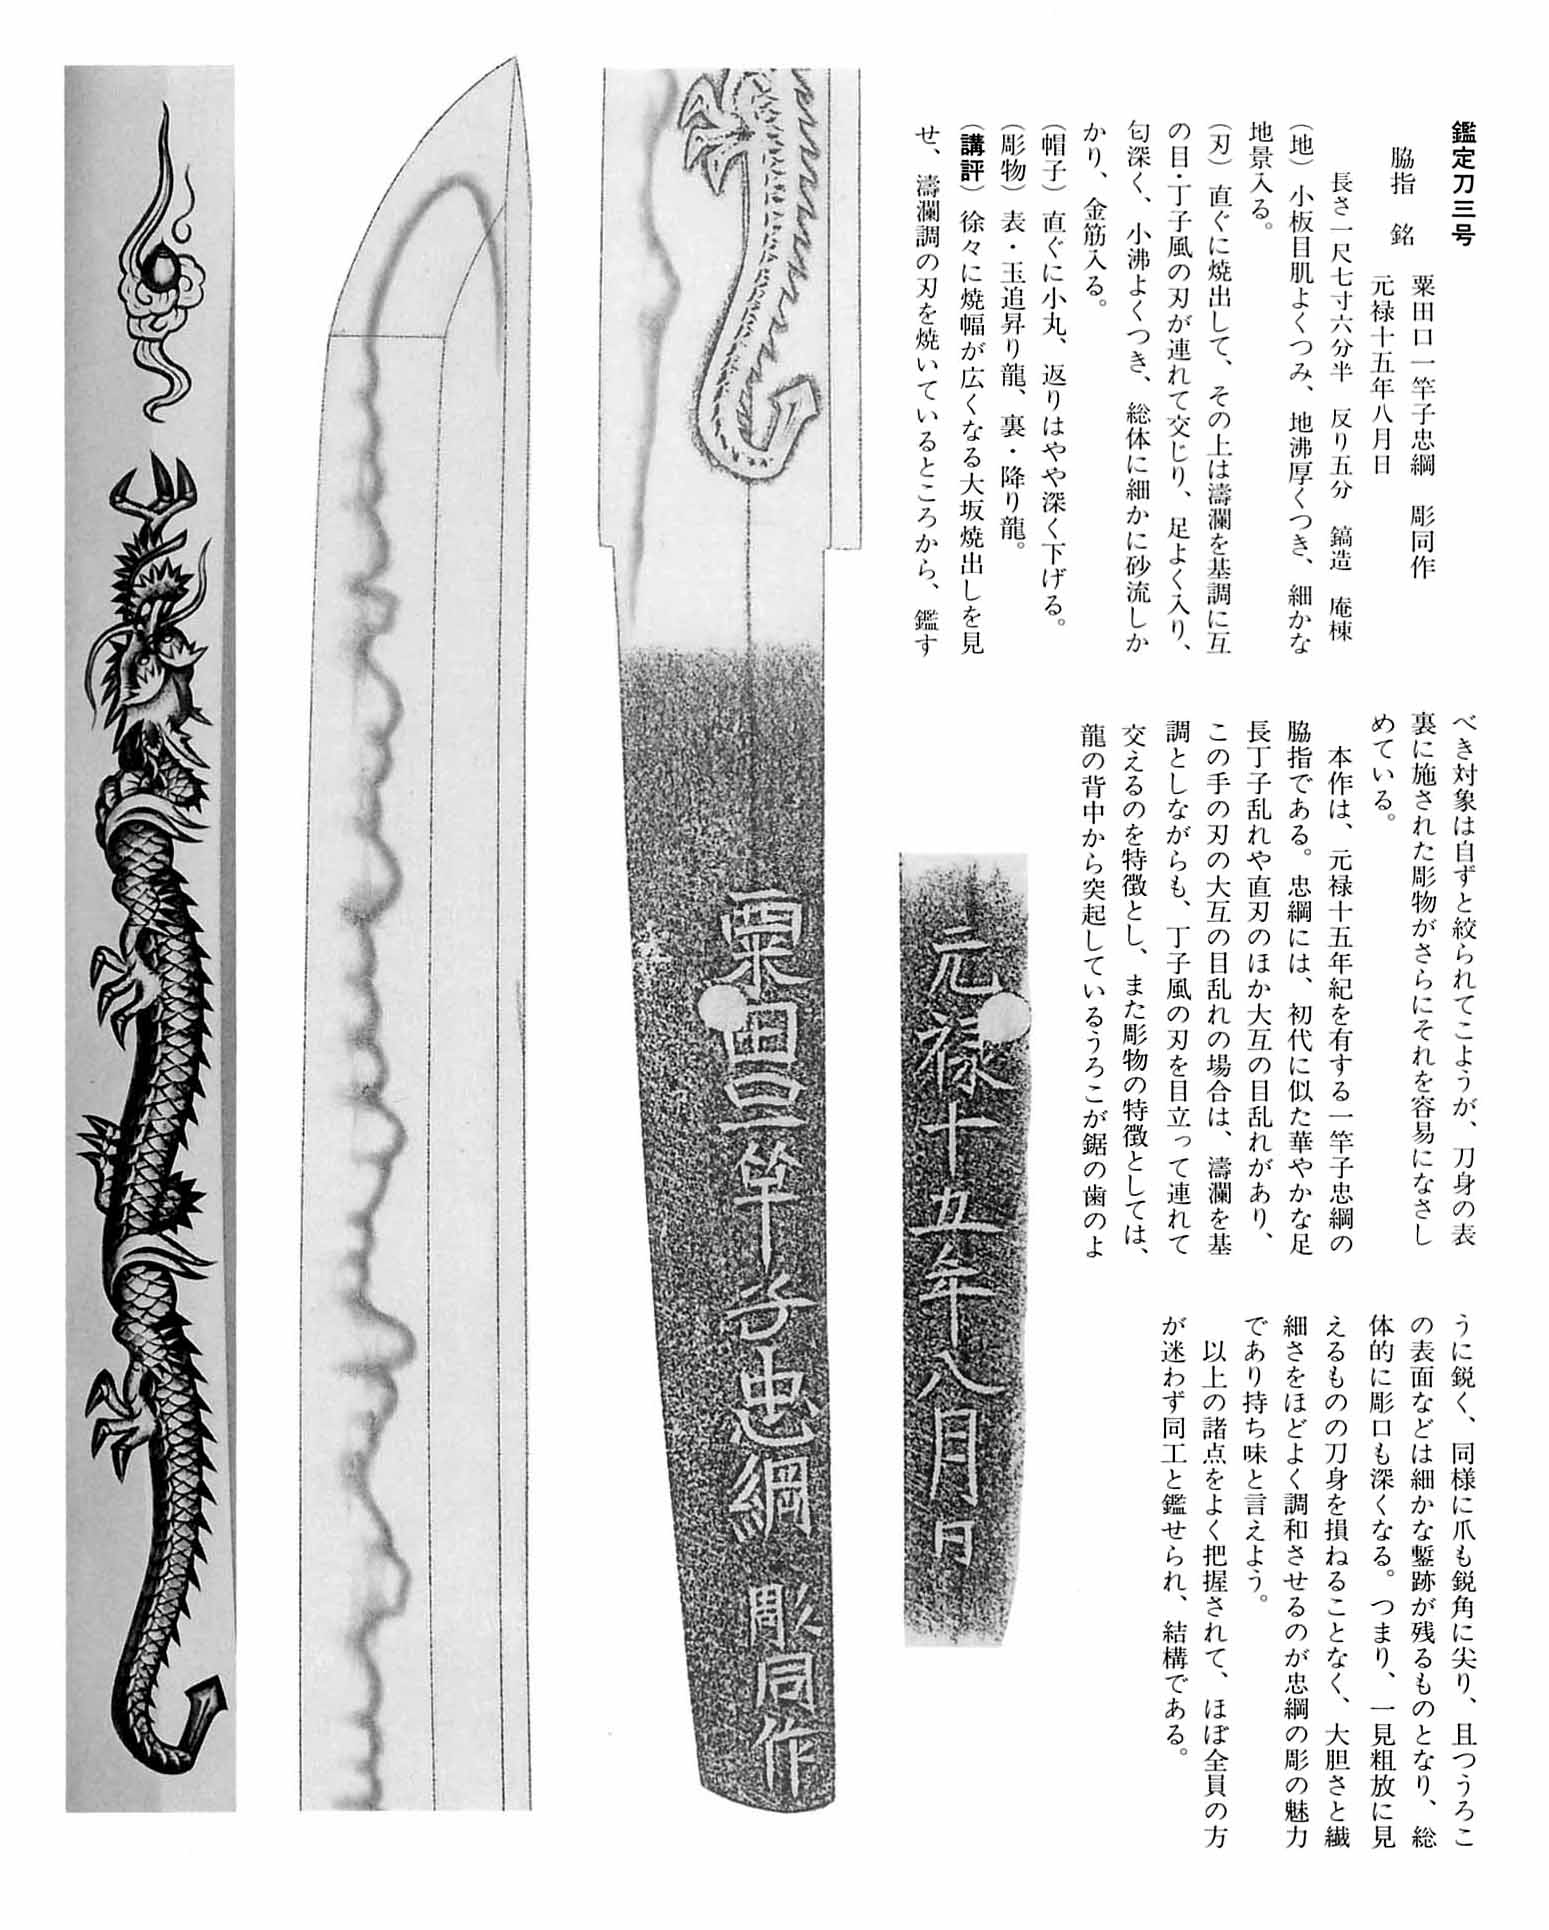 鑑定刀三号
脇指　銘　粟田口一竿子忠綱　彫同作
元禄十五年八月日
長さ一尺七寸六分半　反り五分　鎬造　庵棟
（地）小板目肌よくつみ、地沸厚くつき、細かな
地景入る。
（刃）直ぐに焼出して、その上は濤瀾を基調に互
の目・丁子風の刃が連れて交じり、足よく入り、
匂深く、小沸よくつき、総体に細かに砂流しか
かり、金筋入る。
（帽子）直ぐに小丸、返りはやや深く下げる。
（彫物）表・玉追昇り龍、裏・降り龍。
（講評）徐々に焼幅が広くなる大坂焼出しを見
せ、濤瀾調の刃を焼いているところから、鑑す
べき対象は自ずと絞られてこようが、刀身の表
裏に施された彫物がさらにそれを容易になさし
めている。
本作は、元禄十五年紀を有する一竿子忠綱の
脇指である。忠綱には、初代に似た華やかな足
長丁子乱れや直刃のほか大互の目乱れがあり、
この手の刃の大互の目乱れの場合は、濤瀾を基
調としながらも、丁子風の刃を目立って連れて
交えるのを特徴とし、また彫物の特徴としては、
龍の背中から突起しているうろこが鋸の歯のよ
うに鋭く、同様に爪も鋭角に尖り、且つうろこ
の表面などは細かな鏨跡が残るものとなり、総
体的に彫口も深くなる。つまり、一見粗放に見
えるものの刀身を損ねることなく、大胆さと繊
細さをほどよく調和させるのが忠綱の彫の魅力
であり持ち味と言えよう。
以上の諸点をよく把握されて、ほぼ全員の方
が迷わず同工と鑑せられ、結構である。
元禄十五年八月日
粟田口一竿子忠綱　彫同作